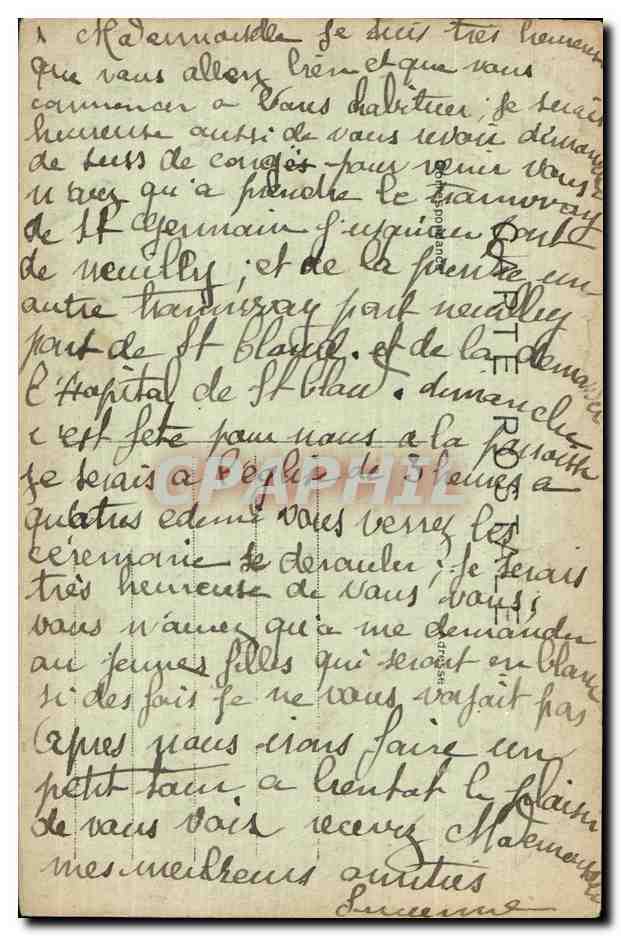 Mademoiselle Je suis très heureuse
que vous allez bien et que vous
commencer a vous habituer; Je serais
heureuse aussi de vous revoir dimanche
de de congés pour venir vous
n'avez qu'a prendre le tramway
de St Germain Jusqu'au pont
de neuilly; et de la prendre un
autre tramway pont neuilley
pont de St Cloud. et de la demander
l'Hopital de St Clou. dimanche
c'est fete pour nous a la paroisse
Je serais a l'eglise de 3 heures a
quatres edemi vous verrez le
cérémonie se derouler; Je serais
très heureuse de vous vous;
vous n'aurez qu'a me demander
au jeunes filles qui seront en blanc
si des fois Je ne vous voyait pas
Apres nous irons faire un
petit tour a bientot le plaisir
de vous voir recevez Mademoiselle
mes meilleurs amitiés
Suzanne
CARTE POSTALE
Correspondance
Adresse
CPAPHIL